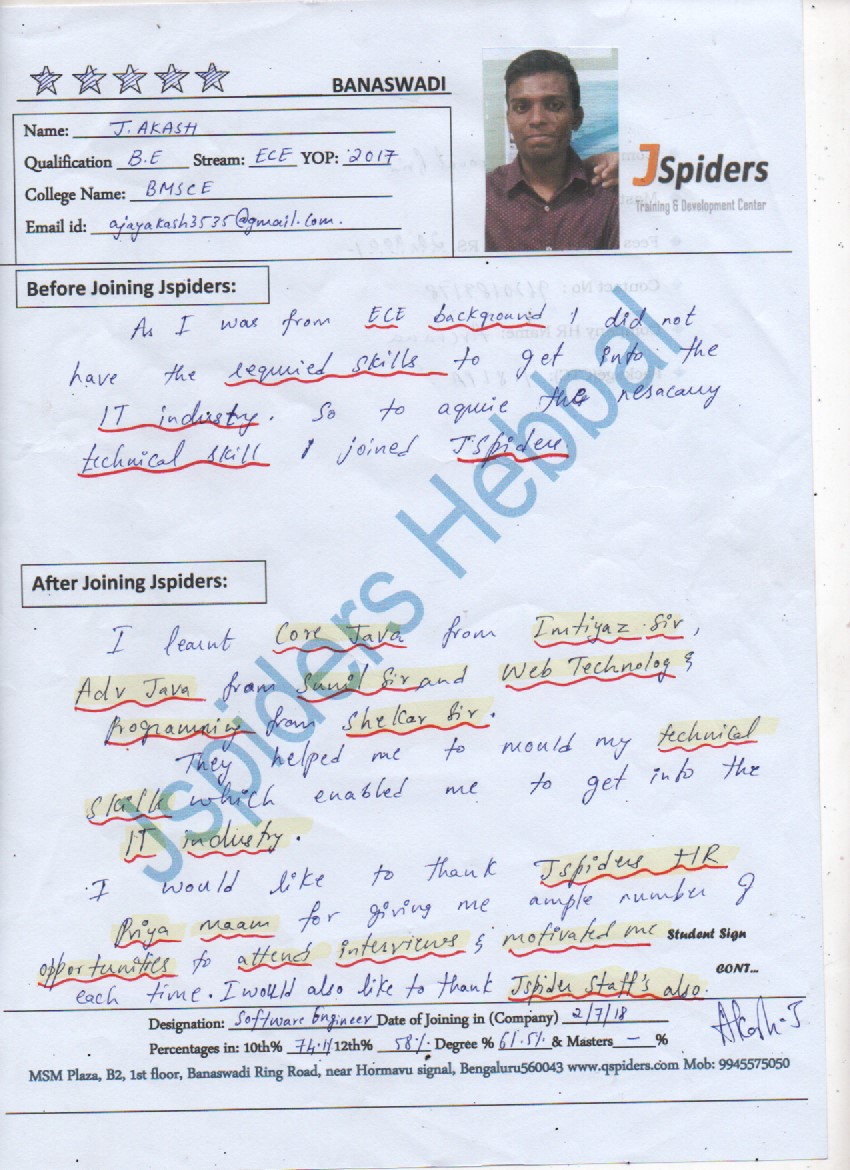 BANASWADI
Name: J. AKASH
Qualification B.E Stream: ECE YOP: 2017
College Name: BMSCE
Email id: ajayakash3535@gmail.com.
JSpiders
Training & Development Center
Before Joining Jspiders:
As I was from ECE background I did not
have the requried skills to get into the
IT industry. So to aquire the nesacarry
technical skill I joined JSpiders.
After Joining Jspiders:
I learnt Core Java from Imtiyaz Sir,
Adv Java from Sunil Sir and Web Technology &
Programming from Shekar Sir.
They helped me to mould my technical
skills which enabled me to get into the
IT industry.
I would like to thank Jspiders HR
Priya maam for giving me ample number of
opportunities to attend interviews & motivated me Student Sign
CONT...
each time. I would also like to thank Jspider Staff's also.
Designation: Software Engineer Date of Joining in (Company) 2/7/18
Akash.J
Percentages in: 10th% 12th% 58% Degree % 61.5% & Masters — %
MSM Plaza, B2, 1st floor, Banaswadi Ring Road, near Hormavu signal, Bengaluru560043 www.qspiders.com Mob: 9945575050
Jspiders Hebbal